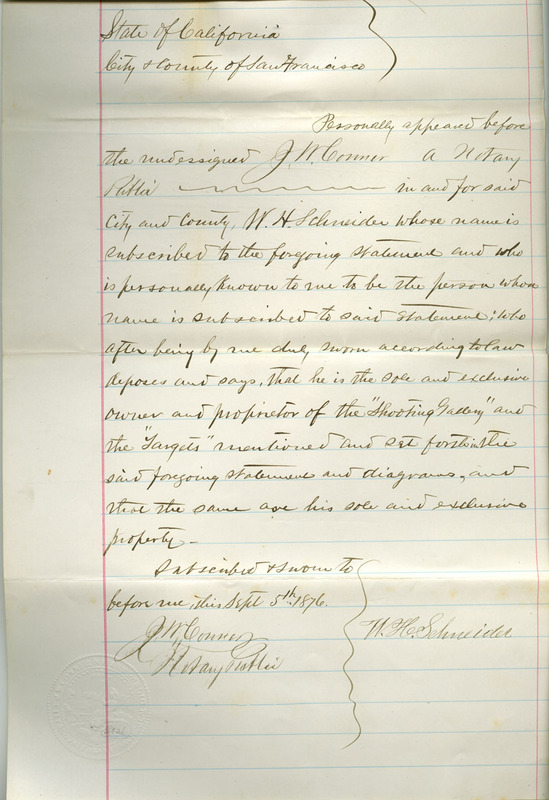 State of California
City & County of San Francisco
Personally appeared before
the undessigned J. W. Conner a Notary
Public in and for said
City and County, W. H. Schneider whose name is
subscribed to the forgoing statement and who
is personally known to me to be the person whose
name is subscribed to said statement; who
after being by me duly sworn according to law
deposes and says, that he is the sole and exclusive
owner and proprietor of the "Shooting Gallery" and
the "Targets" mentioned and set forth in the
said foregoing statement and diagrams, and
that the same are his sole and exclusive
property—
Subscribed & sworn to
before me, this Sept 5th 1876.
J. W. Conner W. H. Schneider
Notary Public